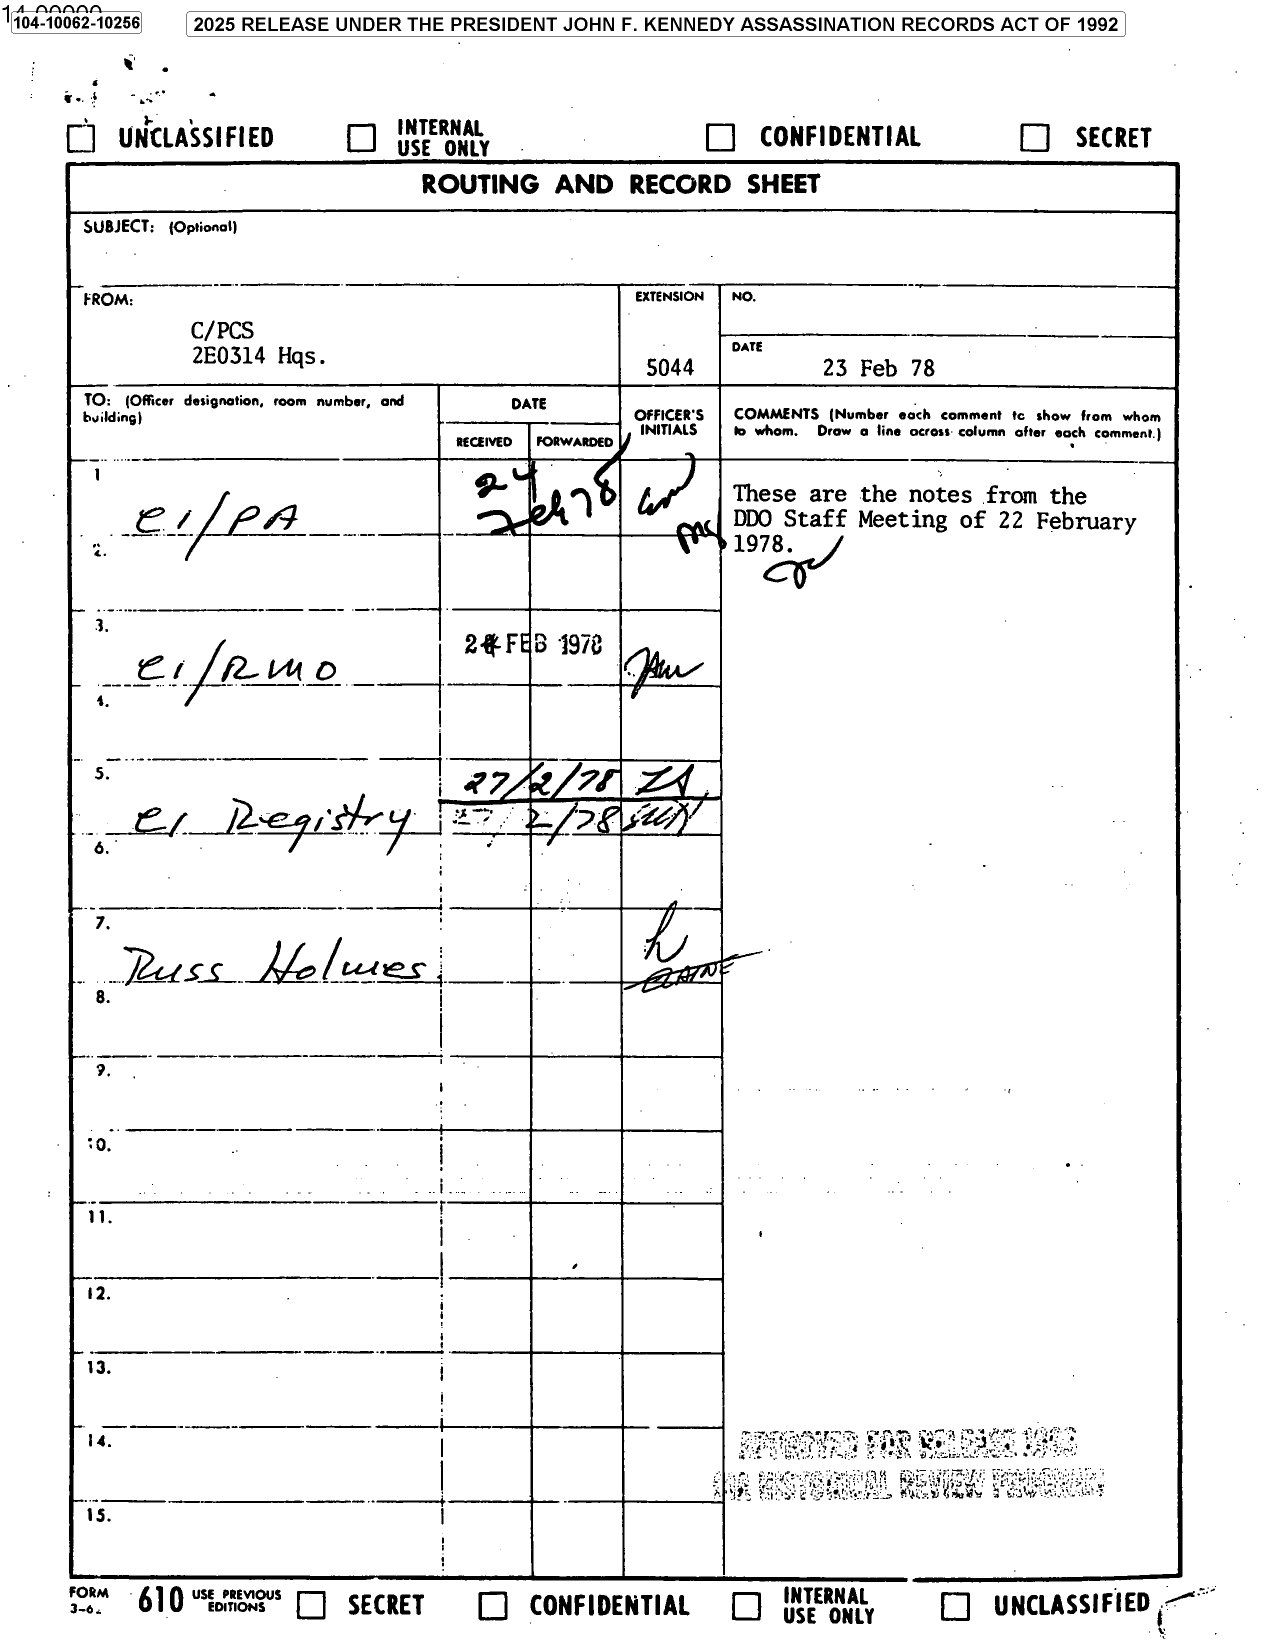 104-10062-10256
2025 RELEASE UNDER THE PRESIDENT JOHN F. KENNEDY ASSASSINATION RECORDS ACT OF 1992
UNCLASSIFIED INTERNAL USE ONLY CONFIDENTIAL SECRET
ROUTING AND RECORD SHEET
SUBJECT: (Optional)
FROM:
C/PCS
2E0314 Hqs.
EXTENSION
5044
NO.
DATE
23 Feb 78
TO: (Officer designation, room number, and
building)
DATE
RECEIVED FORWARDED
OFFICER'S
INITIALS
COMMENTS (Number each comment to show from whom
to whom. Draw a line across column after each comment.)
1
CI/PA
24
Feb 78
These are the notes from the
DDO Staff Meeting of 22 February
1978.
2.
3.
CI/RMO
24 FEB 1978
4.
5.
CI Registry
27/2/78
27/2/78
6.
7.
Russ Holmes
8.
9.
10.
11.
12.
13.
14.
APPROVED FOR RELEASE 1993
CIA HISTORICAL REVIEW PROGRAM
15.
FORM
3-62
610 USE PREVIOUS
EDITIONS
SECRET CONFIDENTIAL INTERNAL USE ONLY UNCLASSIFIED